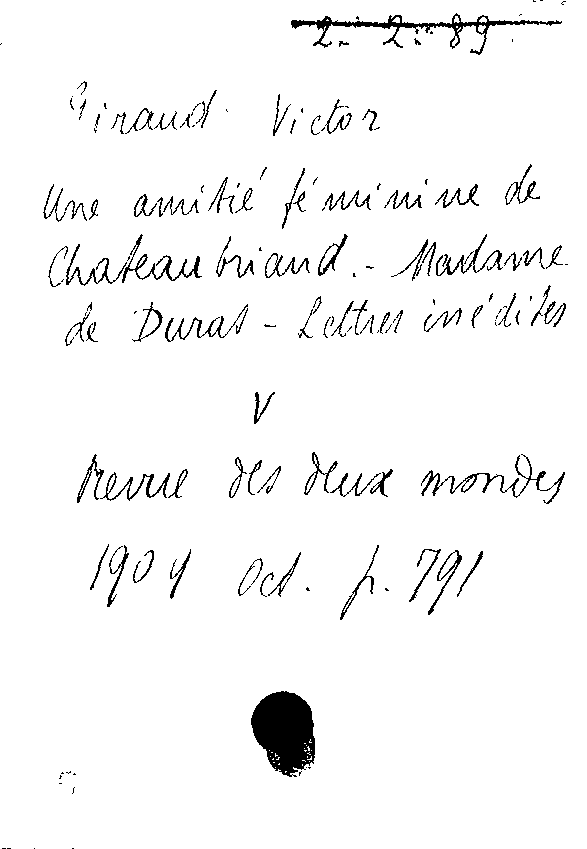 2. 2. 89
Giraud. Victor
Une amitié féminine de
Chateaubriand. - Madame
de Duras - Lettres inédites
V
Revue des deux mondes
1909 Oct. p. 791